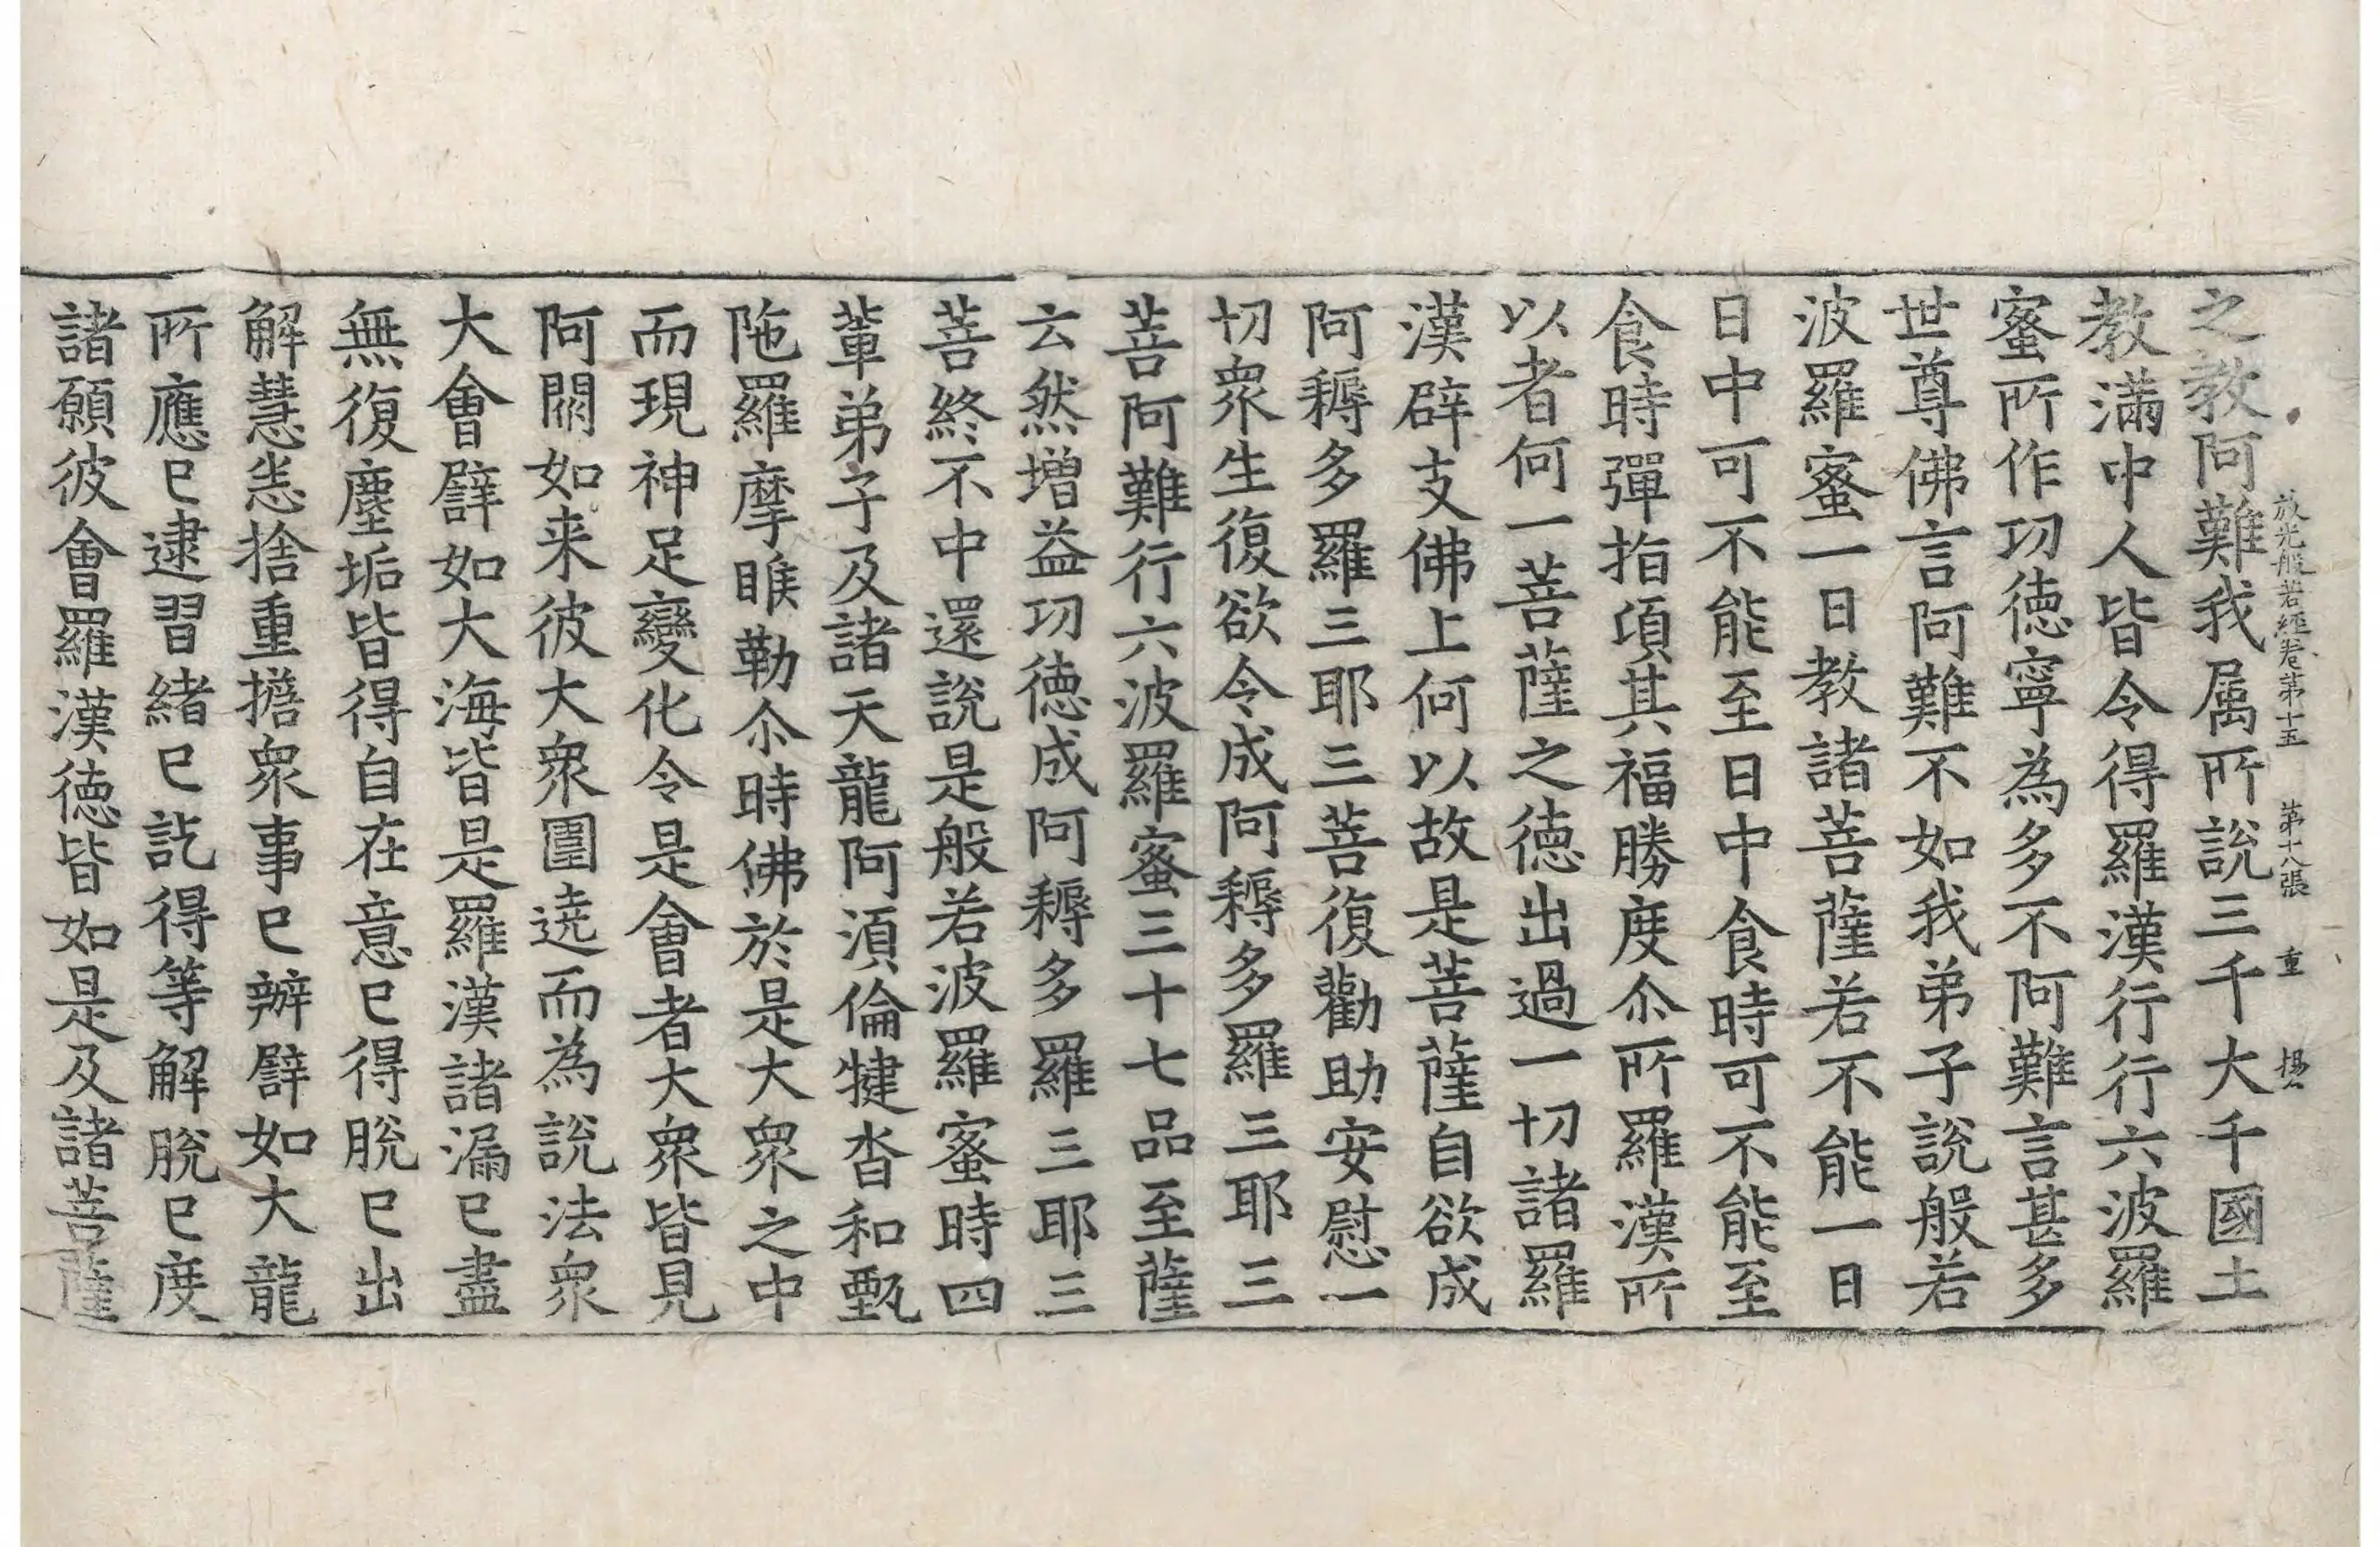 放光般若經卷第十五 第十八張 重 揚
之教阿難我属所說三千大千國土
教滿中人皆令得羅漢行行六波羅
蜜所作功徳寧為多不阿難言甚多
世尊佛言阿難不如我弟子說般若
波羅蜜一日教諸菩薩若不能一日
日中可不能至日中食時可不能至
食時彈指項其福勝度尒所羅漢所
以者何一菩薩之徳出過一切諸羅
漢辟支佛上何以故是菩薩自欲成
阿耨多羅三耶三菩復勸助安慰一
切衆生復欲令成阿耨多羅三耶三
菩阿難行六波羅蜜三十七品至薩
云然增益功徳成阿耨多羅三耶三
菩終不中還說是般若波羅蜜時四
輩弟子及諸天龍阿湏倫揵沓和甄
陁羅摩睺勒尒時佛於是大衆之中
而現神足變化令是會者大衆皆見
阿閦如来彼大衆圍遶而為說法衆
大會譬如大海皆是羅漢諸漏已盡
無復塵垢皆得自在意已得脫已出
解慧恙捨重擔衆事已辦譬如大龍
所應已逮習緒已訖得等解脫已度
諸願彼會羅漢徳皆如是及諸菩薩